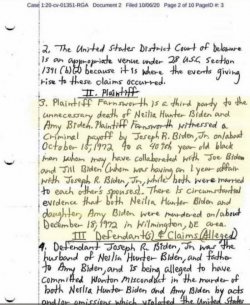 Case 1:20-cv-01351-RGA Document 2 Filed 10/06/20 Page 2 of 10 PageID #: 3
2. The United States District Court of Delaware
is an appropriate venue under 28 USC section
1391 (b)(2) because it is where the events giving
rise to these claims occurred.
II. Plaintiff
3. Plaintiff Farnsworth is a third party to the
unnecessary death of Neilia Hunter Biden and
Amy Biden. Plaintiff Farnsworth witnessed a
criminal payoff by Joseph R. Biden, Jr. on/about
October 18, 1972 to a year old black
man whom may have collaborated with Joe Biden
and Jill Biden (whom was having an 1 year affair
with Joseph R. Biden, Jr. while both were married
to each others spouses). There is circumstantial
evidence that both Neilia Hunter Biden and
daughter, Amy Biden were murdered on/about
December 18, 1972 in Wilmington, DE area.
III Defendant(s) & Claims (Alleged)
4. Defendant Joseph R. Biden, Jr. was the
husband of Neilia Hunter Biden, and father
to Amy Biden, and is being alleged to have
committed Wanton Misconduct in the murder of
both Neilia Hunter Biden and Amy Biden by acts
and/or omissions which violated the United States